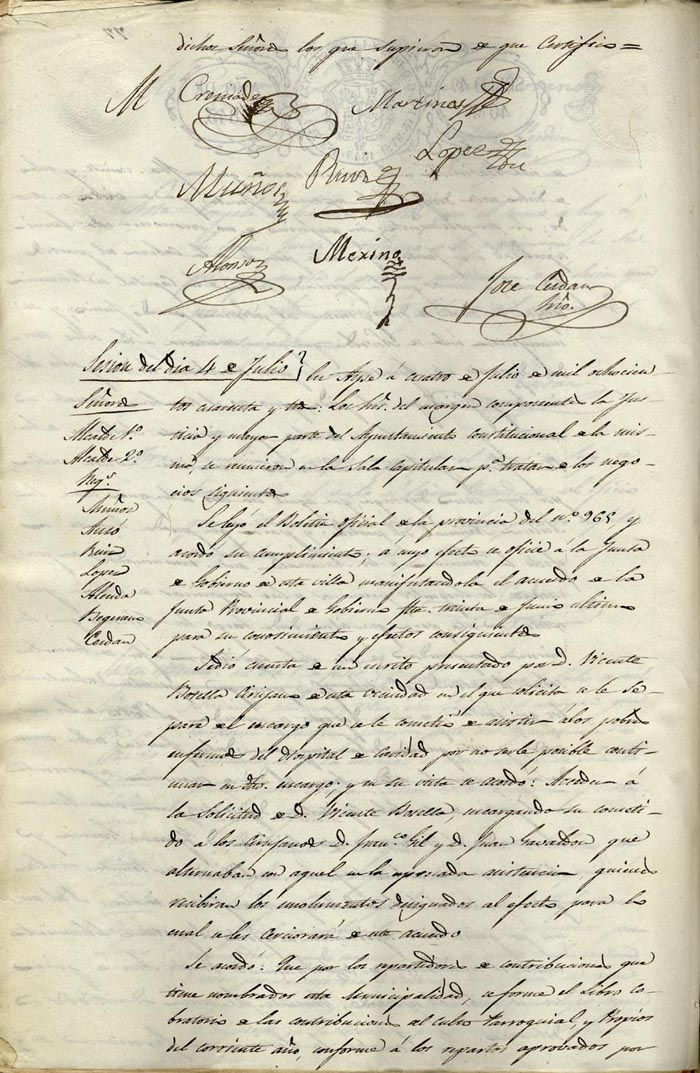 dichos Señores los que supieron de que Certifico=
M Cremades Martinez
Lopez
Muñoz Ruiz
Alonso Merino
Jose Cerdan
Srio.
Sesion del dia 4 de Julio
En Aspe á cuatro de Julio de mil ochocien
tos cuarenta y tres: Los Sres. del margen componentes la Jus-
ticia y mayor parte del Ayuntamiento constitucional de la mis-
ma, se reunieron en la Sala Capitular pa. tratar de los nego-
cios siguientes
Señores
Alcalde 1º.
Alcalde 2º.
Regs.
Muñoz
Ruiz
Lopez
Cerdan
Se leyó el Boletin oficial de la provincia del nº. 965 y
acordó su cumplimiento; á cuyo efecto se oficie á la Junta
de Gobierno de esta villa manifestandola el acuerdo de la
Junta Provincial de Gobierno fha. treinta de Junio ultimo
para su conocimiento y efectos consiguientes
Se dió cuenta de un escrito presentado por D. Vicente
Botella Cirujano de esta vecindad en el que solicita se le se-
pare del encargo que se le cometió de asistir á los pobres
enfermos del Hospital de Caridad por no serle posible conti-
nuar en dho. encargo; y en su vista se acordó: Acceder á
la solicitud de D. Vicente Botella, encargando su cometi-
do á los Cirujanos D. Franco. Gil y D. Juan que
alternaban con aquel en la espresada asistencia quienes
recibiran los emolumentos designados al efecto para lo
cual se les cerciorará de este acuerdo
Se acordó: Que por los repartidores de contribuciones que
tiene nombrados esta Municipalidad, se forme el Libro co-
bratorio de las contribuciones del culto Parroquial, y Propios
del corriente año, conforme á los repartos aprovados por